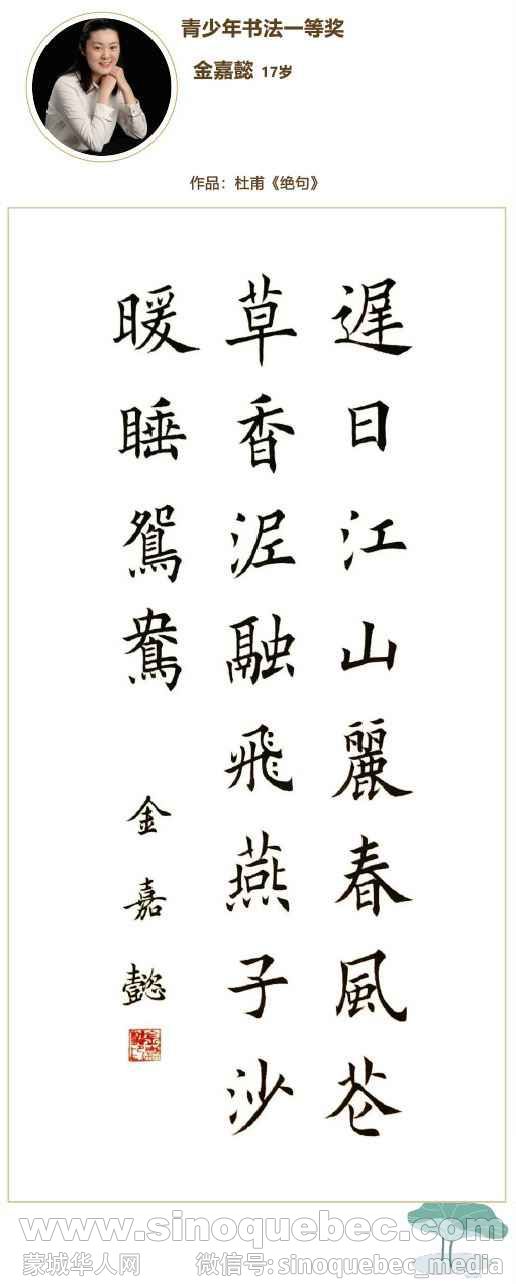 青少年书法一等奖
金嘉懿 17岁
作品：杜甫《绝句》
遲日江山麗春風花
草香泥融飛燕子沙
暖睡鴛鴦
金嘉懿
www.sinoquebec.com
蒙城华人网 微信号:sinoquebec_media